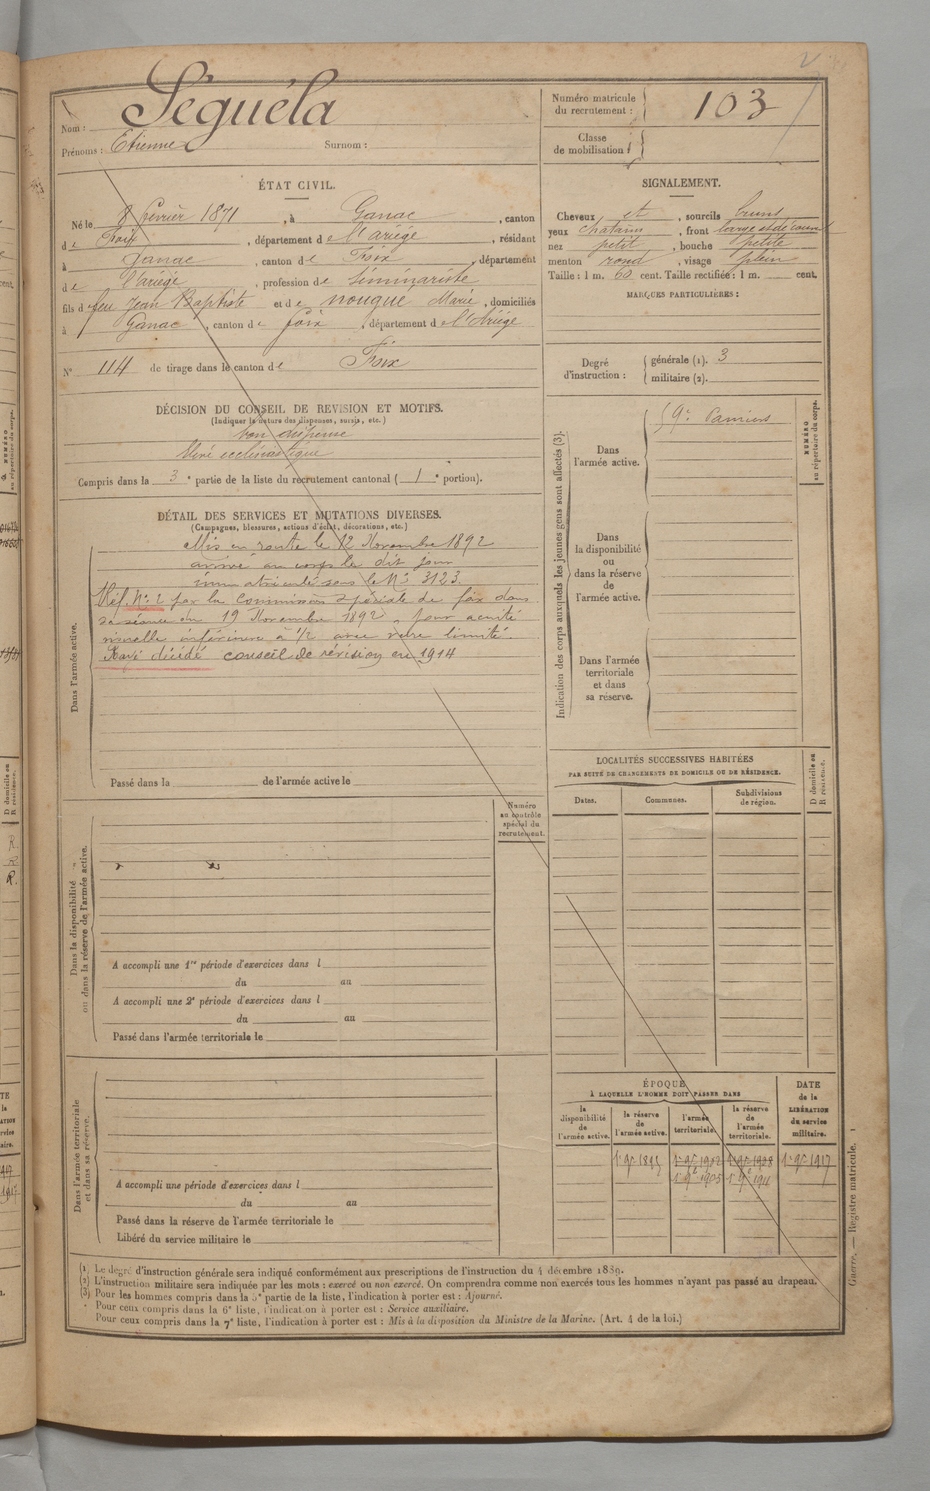 Nom : Séguéla
Prénoms : Etienne Surnom :
Numéro matricule du recrutement : 103
Classe de mobilisation :
ÉTAT CIVIL.
Né le 8 février 1871, à Ganac, canton
de Foix, département de l'ariége, résidant
à Ganac, canton de Foix, département
de l'ariégé, profession de séminariste
fils d feu Jean Baptiste et de nougue Marie, domiciliés
à Ganac, canton de foix, département de l'Ariége
N° 114 de tirage dans le canton de Foix
SIGNALEMENT.
Cheveux et, sourcils bruns
yeux chatains, front large et découvert
nez petit, bouche petite
menton rond, visage plein
Taille : 1 m. 60 cent. Taille rectifiée : 1 m. cent.
MARQUES PARTICULIÈRES :
Degré d'instruction :
générale (1). 3
militaire (2).
DÉCISION DU CONSEIL DE REVISION ET MOTIFS.
(Indiquer la nature des dispenses, sursis, etc.)
bon dispensé
élève ecclésiastique
Compris dans la 3e partie de la liste du recrutement cantonal (1e portion).
DÉTAIL DES SERVICES ET MUTATIONS DIVERSES.
(Campagnes, blessures, actions d'éclat, décorations, etc.)
Dans l'armée active.
Mis en route le 12 Novembre 1892
arrivé au corps le dit jour
immatriculé sous le N° 3123.
Réf. N° 2 par la Commission spéciale de foix dans
sa séance du 19 Novembre 1892, pour acuité
visuelle inférieure à 1/2 avec
décidé conseil de révision en 1914
Passé dans la de l'armée active le
Indication des corps auxquels les jeunes gens sont affectés (3).
NUMÉRO au répertoire du corps.
Dans l'armée active.
59e Pamiers
Dans la disponibilité ou dans la réserve de l'armée active.
Dans l'armée territoriale et dans sa réserve.
LOCALITÉS SUCCESSIVES HABITÉES
PAR SUITE DE CHANGEMENTS DE DOMICILE OU DE RÉSIDENCE.
Dates. Communes. Subdivisions de région.
D domicile ou R résidence.
Dans la disponibilité ou dans la réserve de l'armée active.
Numéro au contrôle spécial du recrutement.
A accompli une 1re période d'exercices dans l
du au
A accompli une 2e période d'exercices dans l
du au
Passé dans l'armée territoriale le
Dans l'armée territoriale et dans sa réserve.
A accompli une période d'exercices dans l
du au
Passé dans la réserve de l'armée territoriale le
Libéré du service militaire le
ÉPOQUE
À LAQUELLE L'HOMME DOIT PASSER DANS
la disponibilité de l'armée active.
la réserve de l'armée active.
l'armée territoriale.
la réserve de l'armée territoriale.
DATE de la LIBÉRATION du service militaire.
1er 9bre 1895 1er 9bre 1902 1er 9bre 1908 1er 9bre 1917
1er 9bre 1905 1er 9bre 1911
(1) Le degré d'instruction générale sera indiqué conformément aux prescriptions de l'instruction du 4 décembre 1889.
(2) L'instruction militaire sera indiquée par les mots : exercé ou non exercé. On comprendra comme non exercés tous les hommes n'ayant pas passé au drapeau.
(3) Pour les hommes compris dans la 5e partie de la liste, l'indication à porter est : Ajourné.
Pour ceux compris dans la 6e liste, l'indication à porter est : Service auxiliaire.
Pour ceux compris dans la 7e liste, l'indication à porter est : Mis à la disposition du Ministre de la Marine. (Art. 4 de la loi.)
Guerre. — Registre matricule.